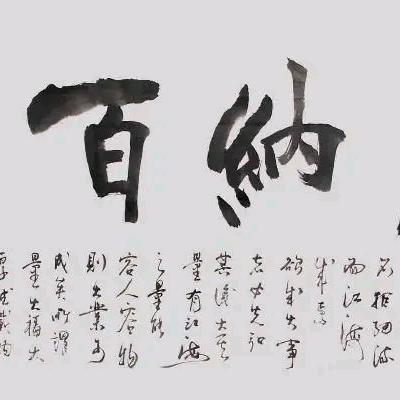 納百
拒細流
而江海
欲成大事
必先
其後大其
量有江海
之量能
容人容物
則大業可
成矣所謂
量大福大
厚德載物